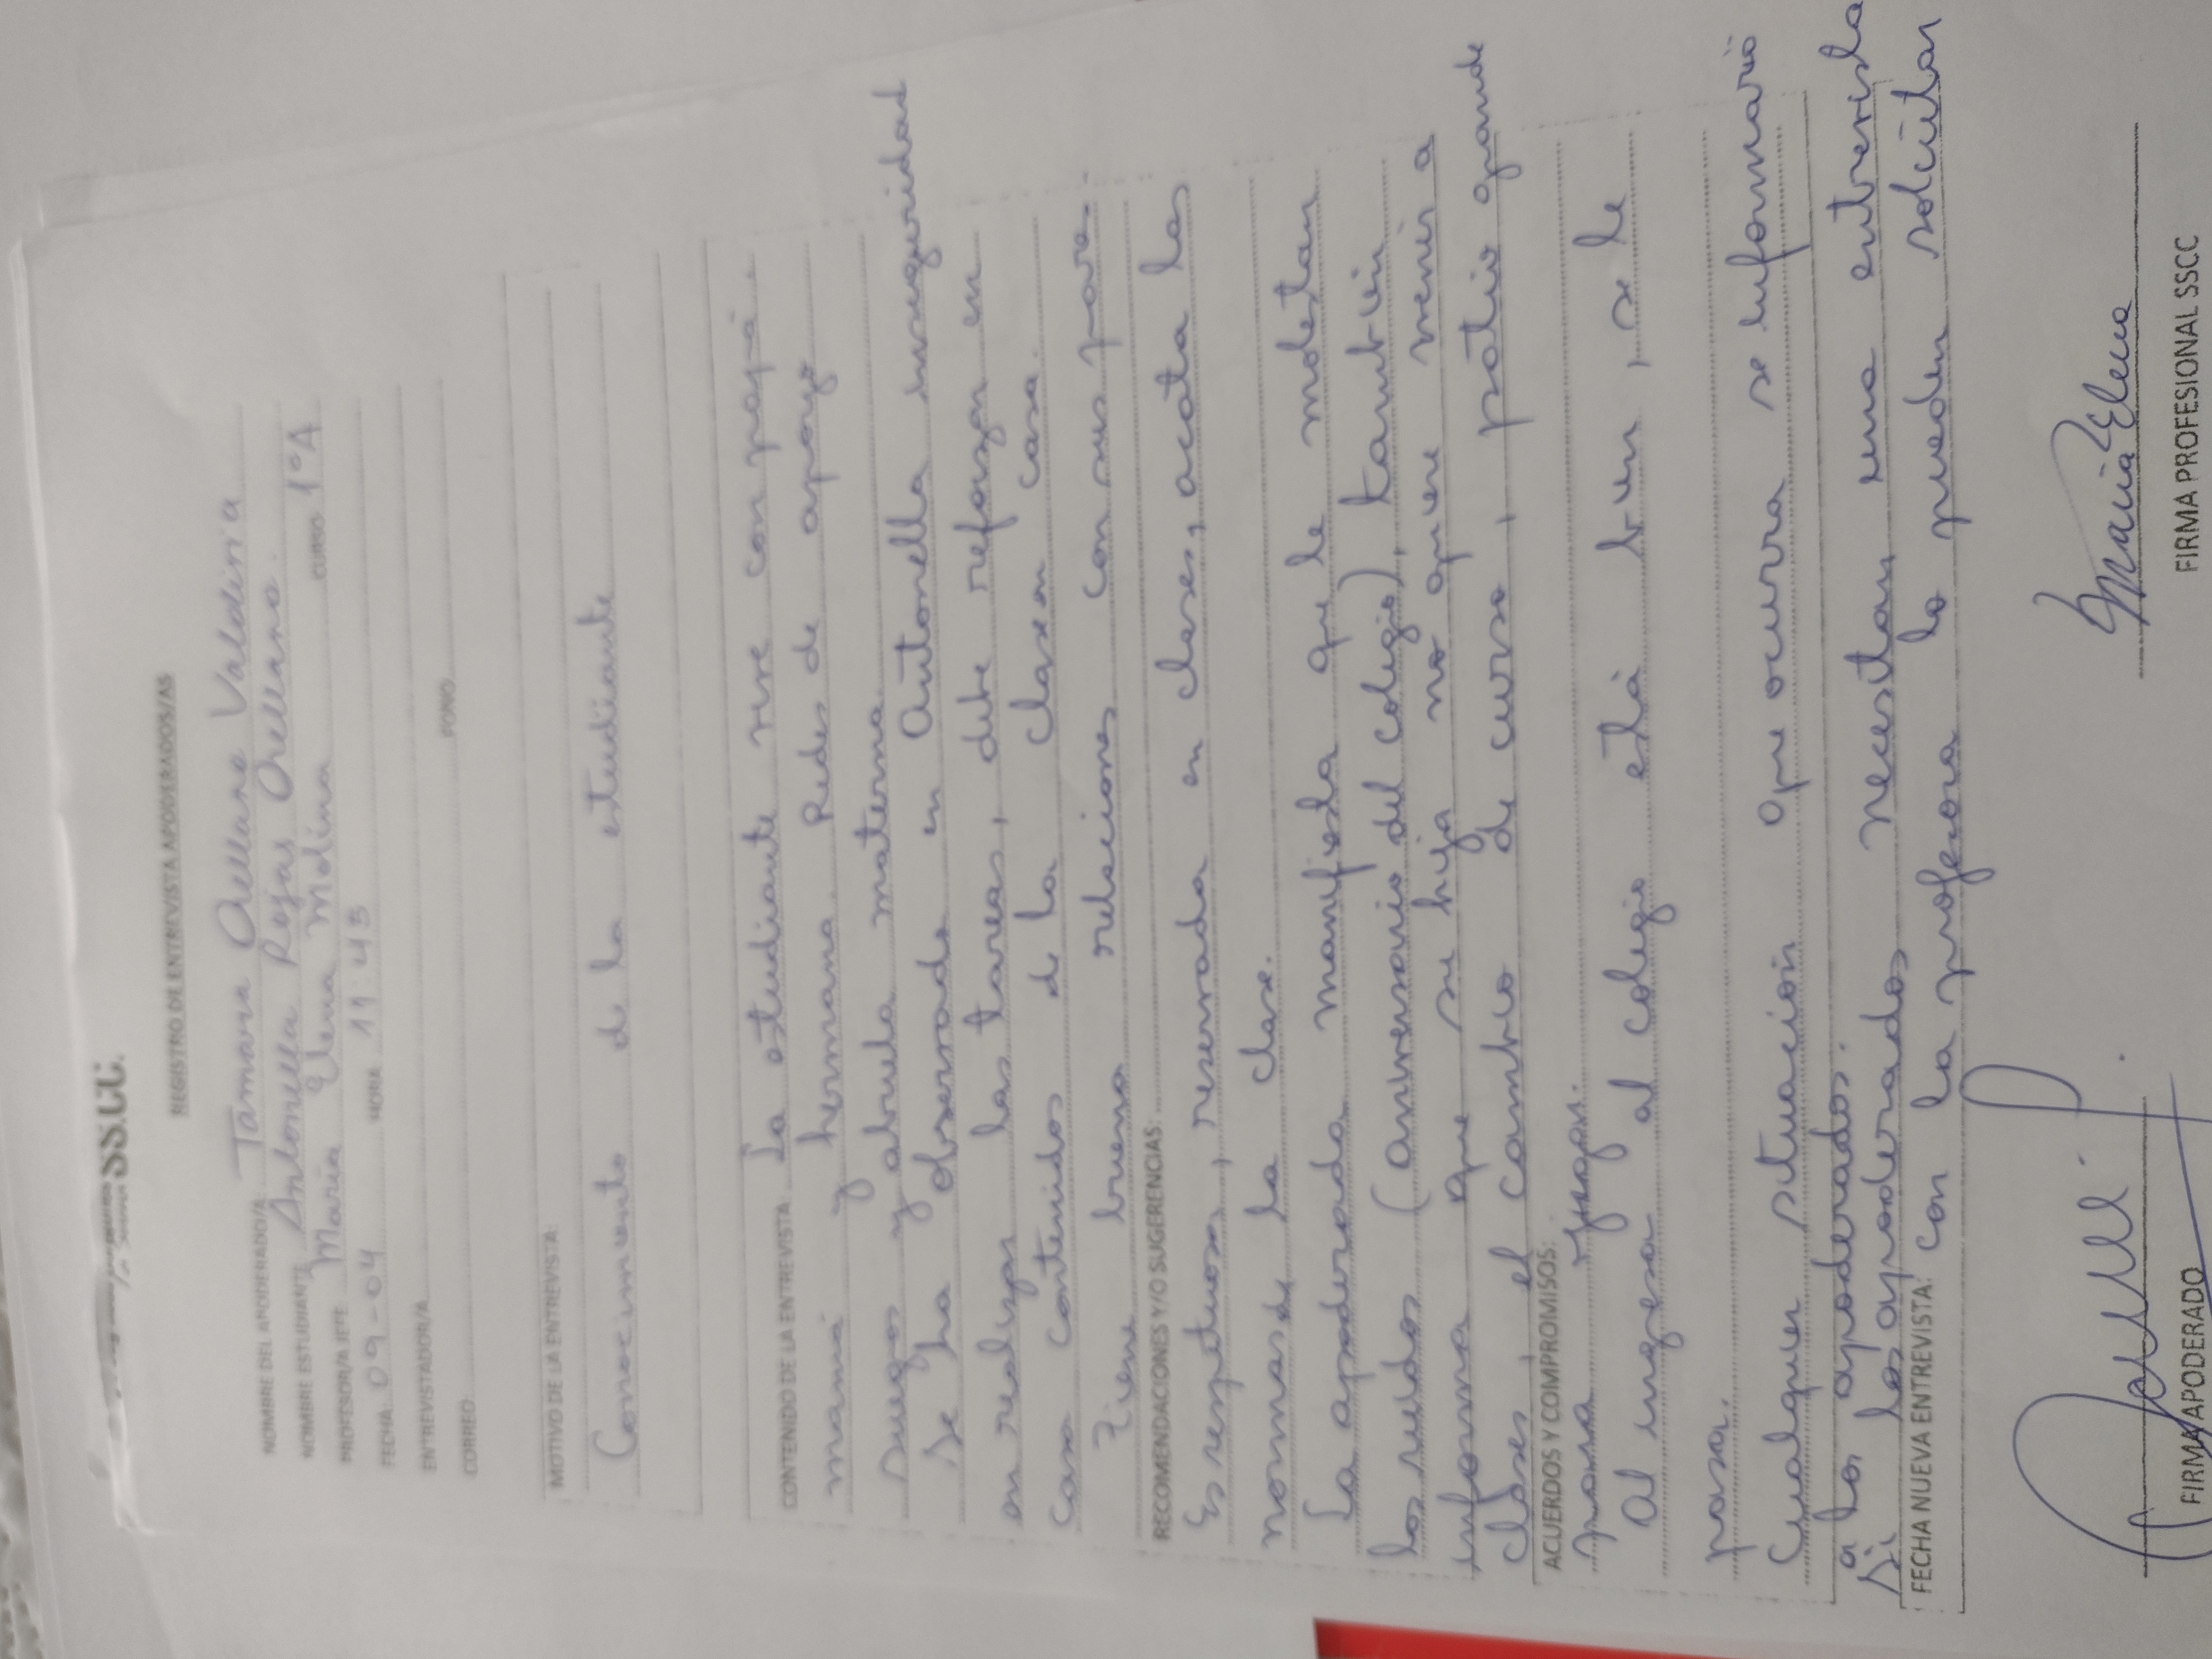 SS.CC.
REGISTRO DE ENTREVISTA APODERADOS/AS
NOMBRE DEL APODERADO/A Tamara Orellana Valdivia
NOMBRE ESTUDIANTE Antonella Rojas Orellana. CURSO 1°A
PROFESOR/A JEFE María Elena Molina
FECHA 09-04 HORA 11:45
ENTREVISTADOR/A
CORREO FONO
MOTIVO DE LA ENTREVISTA:
Conocimiento de la estudiante
CONTENIDO DE LA ENTREVISTA: La estudiante vive con papá
mamá y hermana. Redes de apoyo
suegos y abuela materna.
Se ha observado en Antonella inseguridad
en realizar las tareas, debe reforzar en
casa contenidos de la clase en casa.
Tiene buena relaciones con sus pares.
RECOMENDACIONES Y/O SUGERENCIAS:
Es respetuosa, reservada en clases, acata las
normas de la clase.
La apoderada manifiesta que le molestan
los ruidos (aniversario del colegio), también
informa que su hija no quiere venir a
clases, el cambio de curso, patio grande
ACUERDOS Y COMPROMISOS:
para jugar.
Al ingresar al colegio está bien, se le
pasa.
Cualquier situación que ocurra se informará
a los apoderados.
Si los apoderados necesitan una entrevista
FECHA NUEVA ENTREVISTA: con la profesora lo pueden solicitar
María Elena
FIRMA APODERADO FIRMA PROFESIONAL SSCC